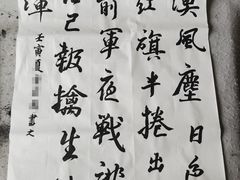 漠風塵日色
紅旗半捲出
前軍夜戰洮
北已報擒生
渾
壬寅夏
書文